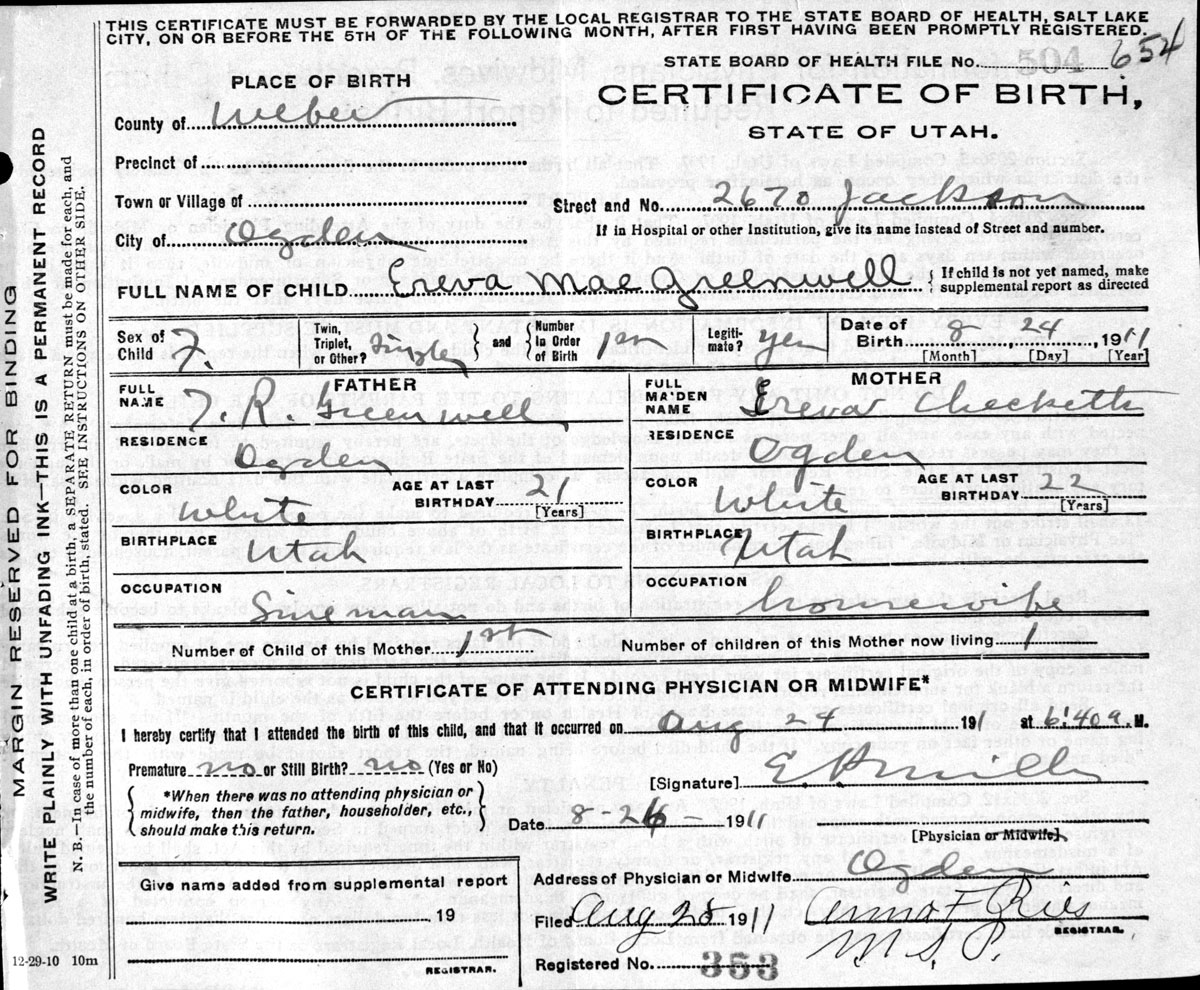 THIS CERTIFICATE MUST BE FORWARDED BY THE LOCAL REGISTRAR TO THE STATE BOARD OF HEALTH, SALT LAKE
CITY, ON OR BEFORE THE 5TH OF THE FOLLOWING MONTH, AFTER FIRST HAVING BEEN PROMPTLY REGISTERED.
STATE BOARD OF HEALTH FILE No. 504 654
PLACE OF BIRTH
CERTIFICATE OF BIRTH,
STATE OF UTAH.
County of Weber
Precinct of
Town or Village of
Street and No. 2670 Jackson
City of Ogden
If in Hospital or other Institution, give its name instead of Street and number.
FULL NAME OF CHILD Ereva Mae Greenwell { If child is not yet named, make
supplemental report as directed
Sex of Child F. Twin, Triplet, or Other? Single and { Number In Order of Birth 1st Legitimate? yes Date of Birth 8 24, 1911
[Month] [Day] [Year]
FATHER
MOTHER
FULL NAME F. R. Greenwell
FULL MAIDEN NAME Ereva Checketts
RESIDENCE Ogden
RESIDENCE Ogden
COLOR White AGE AT LAST BIRTHDAY 21 [Years]
COLOR White AGE AT LAST BIRTHDAY 22 [Years]
BIRTHPLACE Utah
BIRTHPLACE Utah
OCCUPATION
OCCUPATION housewife
Number of Child of this Mother 1st Number of children of this Mother now living 1
CERTIFICATE OF ATTENDING PHYSICIAN OR MIDWIFE*
I hereby certify that I attended the birth of this child, and that it occurred on Aug 24 191 at 6:40 a. M.
Premature no or Still Birth? no (Yes or No)
[Signature]
{ *When there was no attending physician or
midwife, then the father, householder, etc.,
should make this return. }
Date 8-26- 1911
[Physician or Midwife]
Address of Physician or Midwife Ogden
Give name added from supplemental report
19
REGISTRAR.
Filed Aug 1911
REGISTRAR.
Registered No. 353
12-29-10 10m
MARGIN RESERVED FOR BINDING
WRITE PLAINLY WITH UNFADING INK—THIS IS A PERMANENT RECORD
N. B.—In case of more than one child at a birth, a SEPARATE RETURN must be made for each, and
the number of each, in order of birth, stated. SEE INSTRUCTIONS ON OTHER SIDE.